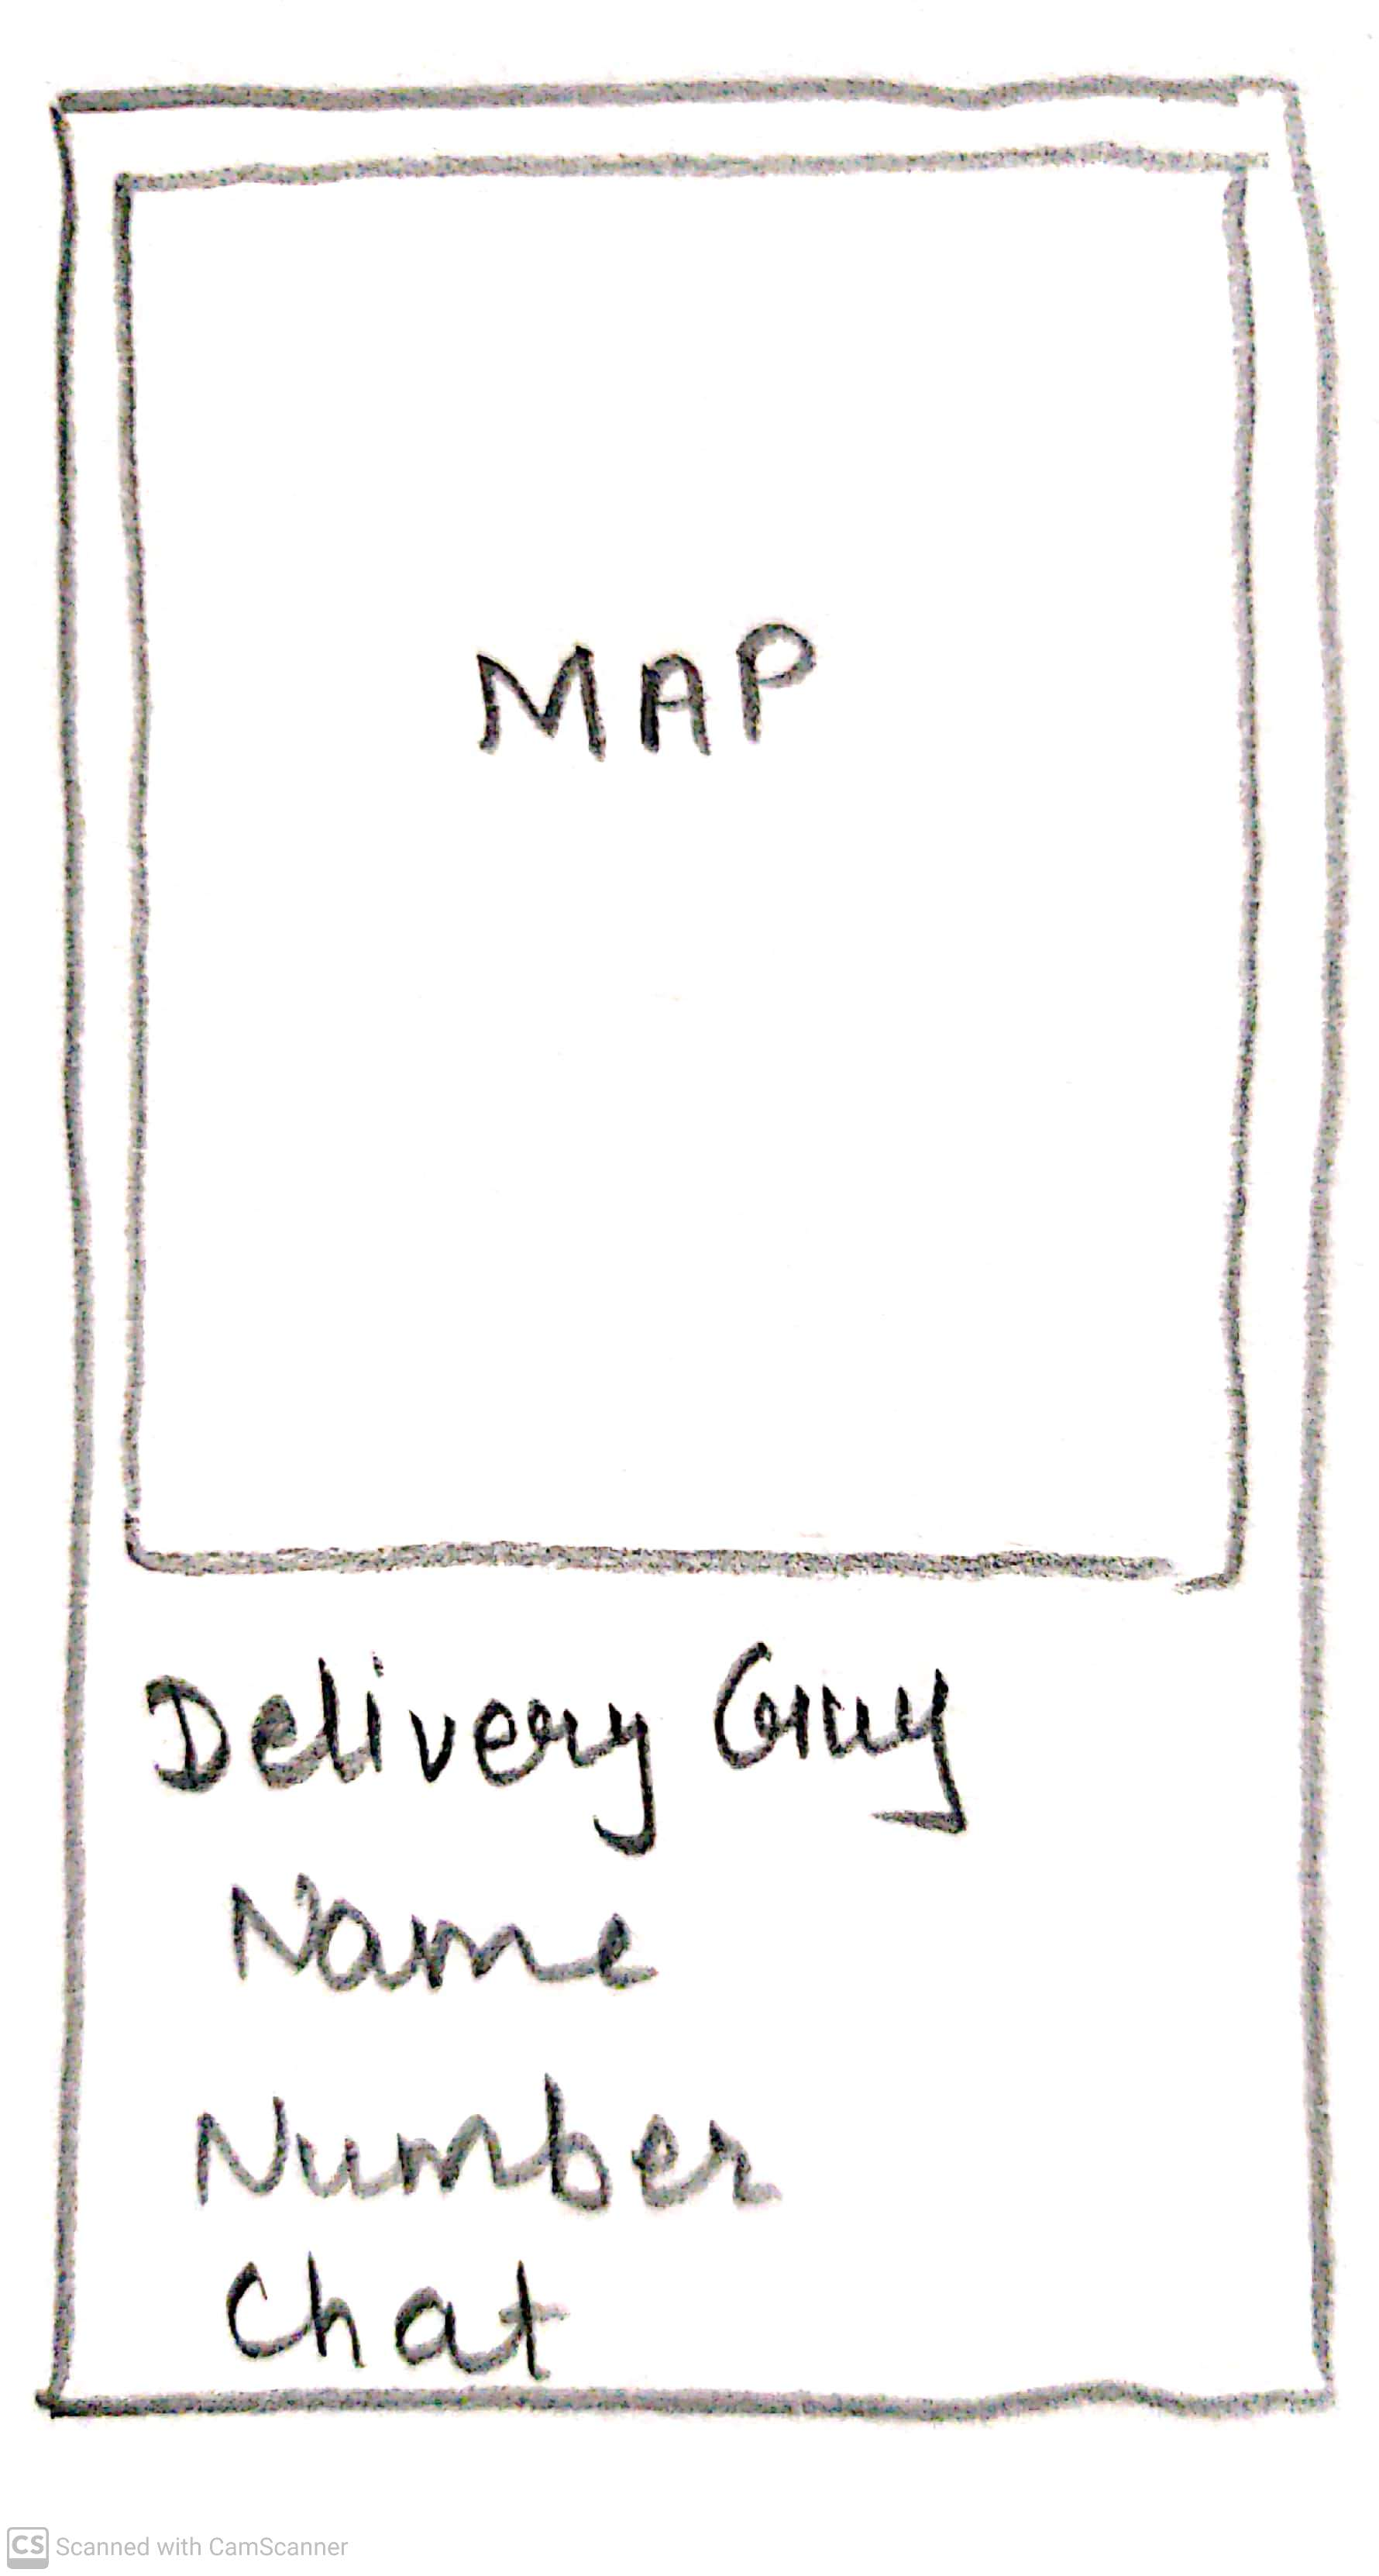 MAP
Delivery Guy
Name
Number
Chat
CS Scanned with CamScanner